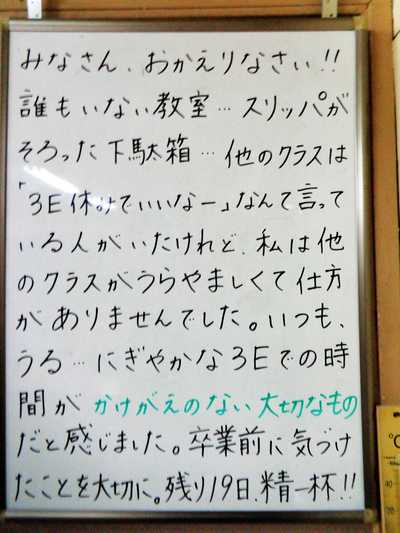 みなさん、おかえりなさい!!
誰もいない教室…スリッパが
そろった下駄箱…他のクラスは
「3E休みでいいなー」なんて言って
いる人がいたけれど、私は他
のクラスがうらやましくて仕方
がありませんでした。いつも、
うる…にぎやかな3Eでの時
間がかけがえのない大切なもの
だと感じました。卒業前に気づけ
たことを大切に。残り19日、精一杯!!
℃
40